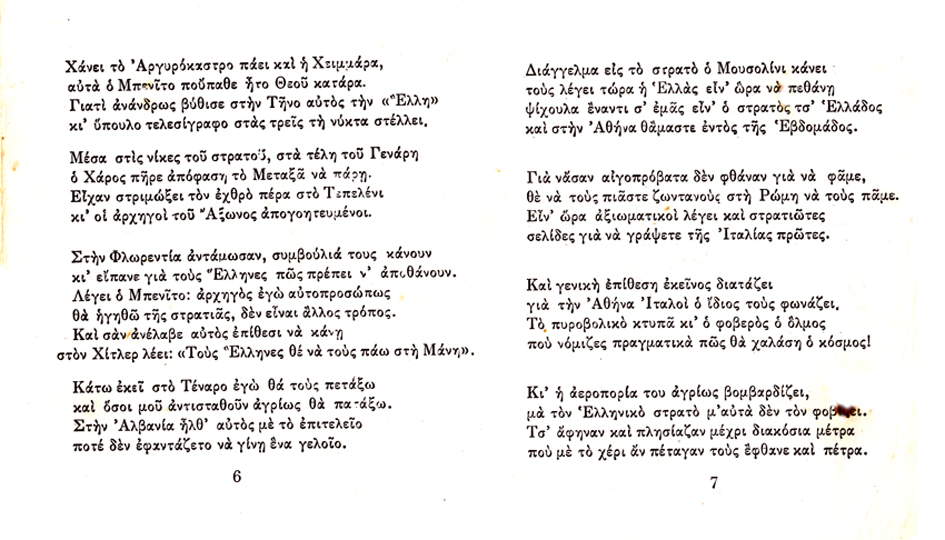 Χάνει τὸ Ἀργυρόκαστρο πάει καὶ ἡ Χειμμάρα,
αὐτὰ ὁ Μπενῖτο ποὔπαθε ἦτο Θεοῦ κατάρα.
Γιατὶ ἀνάνδρως βύθισε στὴν Τῆνο αὐτὸς τὴν «Ἕλλη»
κι' ὕπουλο τελεσίγραφο στὰς τρεῖς τὴ νύκτα στέλλει.
Μέσα στὶς νίκες τοῦ στρατοῦ, στὰ τέλη τοῦ Γενάρη
ὁ Χάρος πῆρε ἀπόφαση τὸ Μεταξᾶ νὰ πάρῃ.
Εἶχαν στριμώξει τὸν ἐχθρὸ πέρα στὸ Τεπελένι
κι' οἱ ἀρχηγοὶ τοῦ Ἄξωνος ἀπογοητευμένοι.
Στὴν Φλωρεντία ἀντάμωσαν, συμβούλιά τους κάνουν
κι' εἴπανε γιὰ τοὺς Ἕλληνες πῶς πρέπει ν' ἀποθάνουν.
Λέγει ὁ Μπενῖτο: ἀρχηγὸς ἐγὼ αὐτοπροσώπως
θὰ ἡγηθῶ τῆς στρατιᾶς, δὲν εἶναι ἄλλος τρόπος.
Καὶ σὰν ἀνέλαβε αὐτὸς ἐπίθεσι νὰ κάνῃ
στὸν Χίτλερ λέει: «Τοὺς Ἕλληνες θέ νὰ τοὺς πάω στὴ Μάνη».
Κάτω ἐκεῖ στὸ Τέναρο ἐγὼ θά τοὺς πετάξω
καὶ ὅσοι μοῦ ἀντισταθοῦν ἀγρίως θὰ πατάξω.
Στὴν Ἀλβανία ἦλθ' αὐτὸς μὲ τὸ ἐπιτελεῖο
ποτέ δὲν ἐφαντάζετο νὰ γίνῃ ἕνα γελοῖο.
6
Διάγγελμα εἰς τὸ στρατὸ ὁ Μουσολίνι κάνει
τοὺς λέγει τώρα ἡ Ἑλλὰς εἶν' ὥρα νὰ πεθάνῃ
ψίχουλα ἔναντι σ' ἐμᾶς εἶν' ὁ στρατὸς τσ' Ἑλλάδος
καὶ στὴν Ἀθήνα θἄμαστε ἐντὸς τῆς Ἑβδομάδος.
Γιὰ νἆσαν αἰγοπρόβατα δὲν φθάναν γιὰ νὰ φᾶμε,
θὲ νὰ τοὺς πιᾶστε ζωντανοὺς στὴ Ρώμη νὰ τοὺς πᾶμε.
Εἶν' ὥρα ἀξιωματικοὶ λέγει καὶ στρατιῶτες
σελίδες γιὰ νὰ γράψετε τῆς Ἰταλίας πρῶτες.
Καὶ γενικὴ ἐπίθεση ἐκεῖνος διατάζει
γιὰ τὴν Ἀθήνα Ἰταλοὶ ὁ ἴδιος τοὺς φωνάζει.
Τὸ πυροβολικὸ κτυπᾶ κι' ὁ φοβερὸς ὁ ὅλμος
ποὺ νόμιζες πραγματικὰ πῶς θὰ χαλάσῃ ὁ κόσμος!
Κι' ἡ ἀεροπορία του ἀγρίως βομβαρδίζει,
μὰ τὸν Ἑλληνικὸ στρατὸ μ'αὐτὰ δὲν τὸν
Τσ' ἄφηναν καὶ πλησίαζαν μέχρι διακόσια μέτρα
ποὺ μὲ τὸ χέρι ἄν πέταγαν τοὺς ἔφθανε καὶ πέτρα.
7